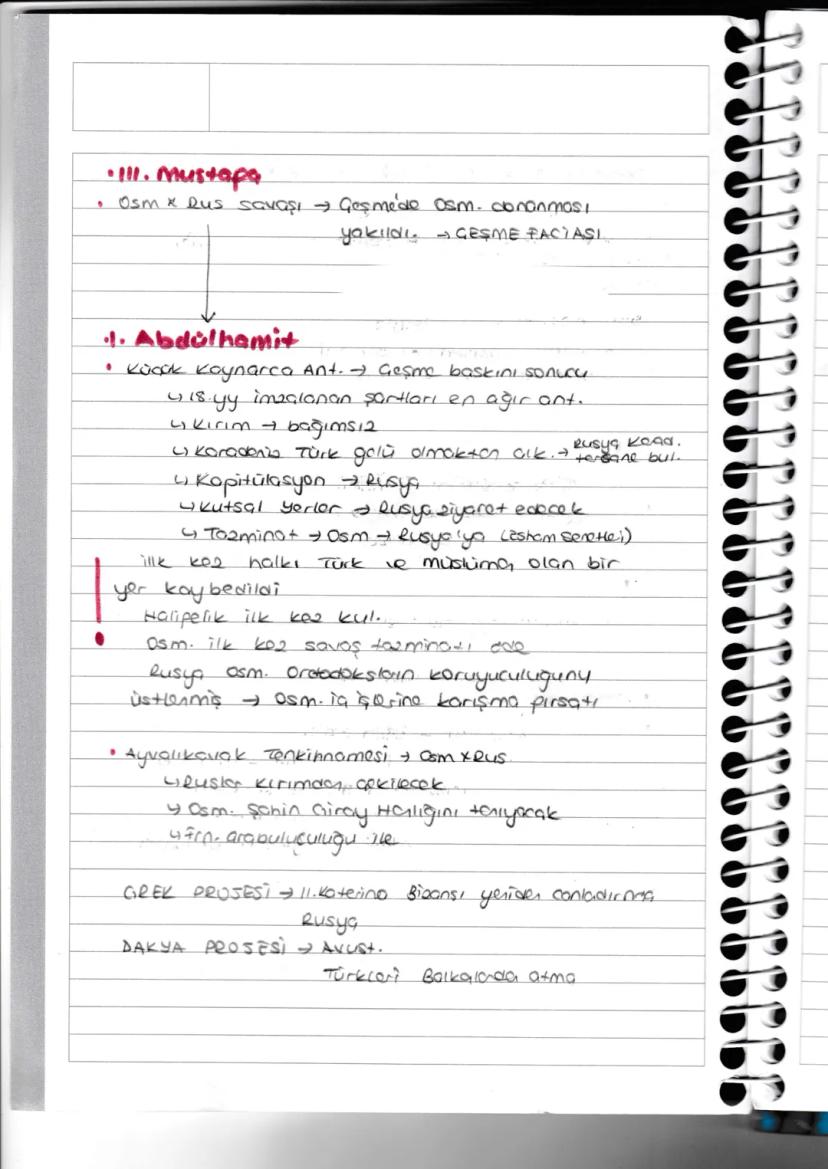 • III. Mustafa
• Osm x Rus savaşı → Çeşme'de Osm. donanması
yakıldı. → ÇEŞME FACİASI
• I. Abdülhamit
• Küçük Kaynarca Ant. → Çeşme baskını sonucu
↳ 18.yy imzalanan şartları en ağır ant.
↳ Kırım → bağımsız
↳ Karadeniz Türk gölü olmaktan çık. → Rusya Karad. tersane bul.
↳ Kapitülasyon → Rusya
↳ Kutsal yerler → Rusya ziyaret edecek
↳ Tazminat → Osm → Rusya'ya (Esham senetleri)
ilk kez halkı Türk ve müslüman olan bir
yer kaybedildi
Halifelik ilk kez kul.
Osm. ilk kez savaş tazminatı öde
Rusya Osm. Ortodoksların koruyuculuğunu
üstlenmiş → Osm. iç işlerine karışma fırsatı
• Aynalıkavak Tenkihnamesi → Osm x Rus
↳ Ruslar Kırımdan çekilecek
↳ Osm. Şahin Giray Hanlığını tanıyacak
↳ Frn. arabuluculuğu ile
GREK PROJESİ → II. Katerina Bizansı yeniden canladırma
Rusya
DAKYA PROJESİ → Avust.
Türkleri Balkalarda atma